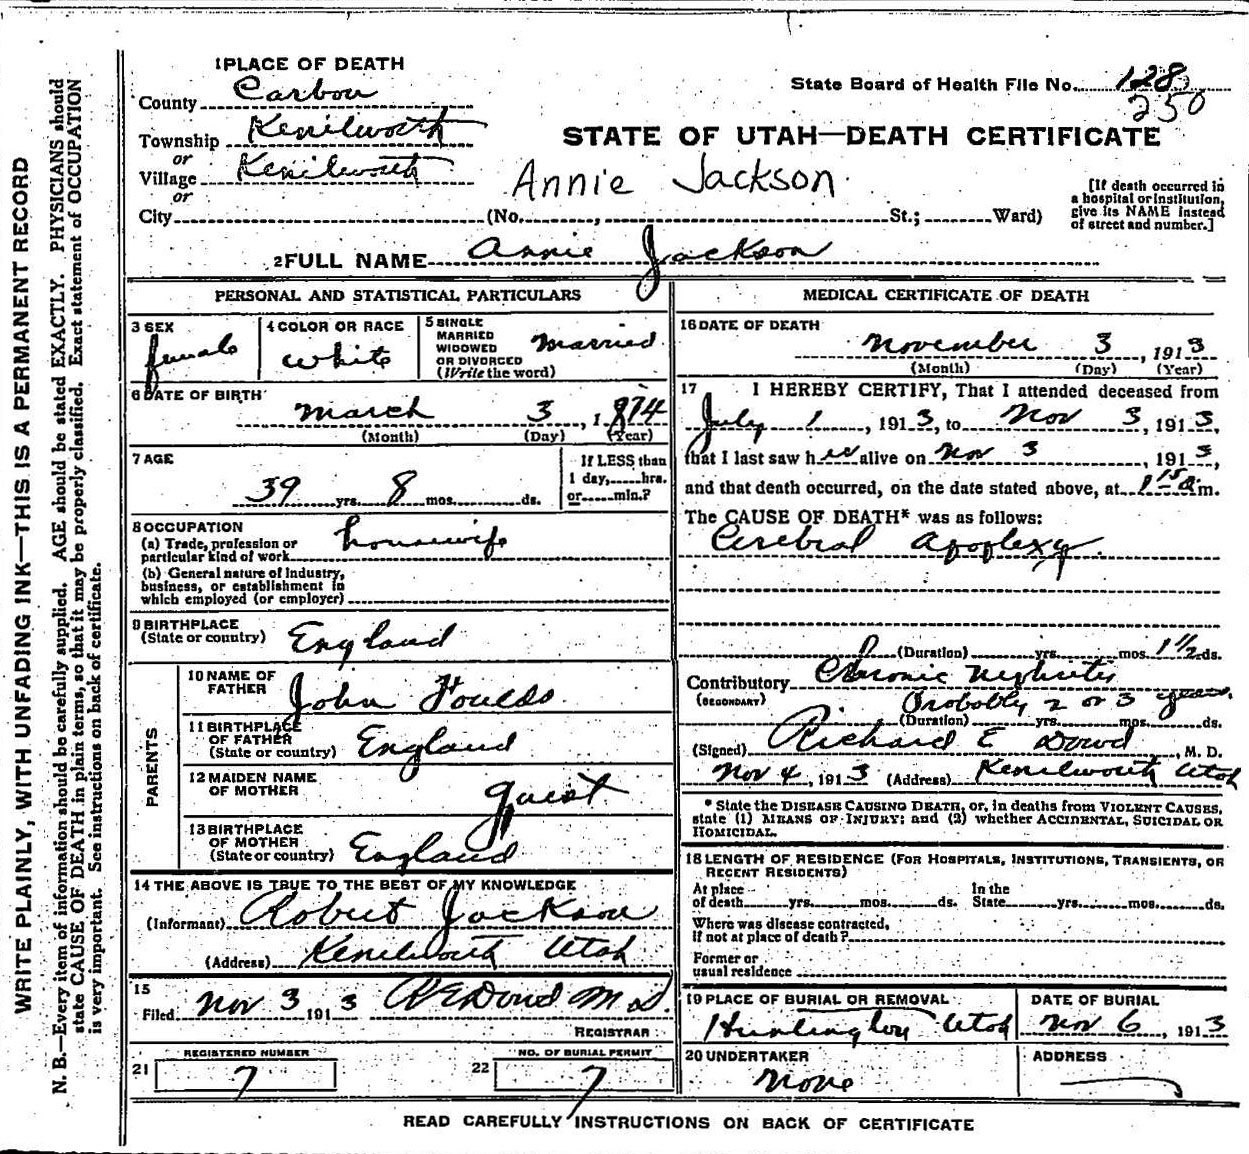 WRITE PLAINLY, WITH UNFADING INK—THIS IS A PERMANENT RECORD
N. B.—Every item of information should be carefully supplied. AGE should be stated EXACTLY. PHYSICIANS should
state CAUSE OF DEATH in plain terms, so that it may be properly classified. Exact statement of OCCUPATION
is very important. See instructions on back of certificate.
1 PLACE OF DEATH
County Carbon
Township Kenilworth
or
Village Kenilworth
or
City (No. , St.; Ward)
State Board of Health File No. 128
250
STATE OF UTAH—DEATH CERTIFICATE
Annie Jackson
[If death occurred in
a hospital or institution,
give its NAME instead
of street and number.]
2 FULL NAME Annie Jackson
PERSONAL AND STATISTICAL PARTICULARS
3 SEX
female
4 COLOR OR RACE
White
5 SINGLE
MARRIED
WIDOWED
OR DIVORCED
(Write the word)
Married
6 DATE OF BIRTH
March 3, 1874
(Month) (Day) (Year)
7 AGE
39 yrs. 8 mos. ds.
If LESS than
1 day, hrs.
or min.?
8 OCCUPATION
(a) Trade, profession or
particular kind of work housewife
(b) General nature of industry,
business, or establishment in
which employed (or employer)
9 BIRTHPLACE
(State or country) England
PARENTS
10 NAME OF
FATHER John Foulds
11 BIRTHPLACE
OF FATHER
(State or country) England
12 MAIDEN NAME
OF MOTHER guest
13 BIRTHPLACE
OF MOTHER
(State or country) England
14 THE ABOVE IS TRUE TO THE BEST OF MY KNOWLEDGE
(Informant) Robert Jackson
(Address) Kenilworth Utah
15
Filed Nov 3 1913 R E Dowd M D.
REGISTRAR
21 REGISTERED NUMBER
7
22 NO. OF BURIAL PERMIT
7
MEDICAL CERTIFICATE OF DEATH
16 DATE OF DEATH
November 3, 1913
(Month) (Day) (Year)
17 I HEREBY CERTIFY, That I attended deceased from
July 1, 1913, to Nov 3, 1913,
that I last saw her alive on Nov 3, 1913,
and that death occurred, on the date stated above, at 1 15 a m.
The CAUSE OF DEATH* was as follows:
Cerebral Apoplexy.
(Duration) yrs. mos. 1 1/2 ds.
Contributory Chronic Nephritis
(SECONDARY) Probably 2 or 3 years.
(Duration) yrs. mos. ds.
(Signed) Richard E Dowd, M. D.
Nov 4, 1913 (Address) Kenilworth Utah
* State the DISEASE CAUSING DEATH, or, in deaths from VIOLENT CAUSES,
state (1) MEANS OF INJURY; and (2) whether ACCIDENTAL, SUICIDAL OR
HOMICIDAL.
18 LENGTH OF RESIDENCE (FOR HOSPITALS, INSTITUTIONS, TRANSIENTS, OR
RECENT RESIDENTS)
At place In the
of death yrs. mos. ds. State yrs. mos. ds.
Where was disease contracted,
if not at place of death?
Former or
usual residence
19 PLACE OF BURIAL OR REMOVAL
Huntington Utah
DATE OF BURIAL
Nov 6, 1913
20 UNDERTAKER
None
ADDRESS
READ CAREFULLY INSTRUCTIONS ON BACK OF CERTIFICATE